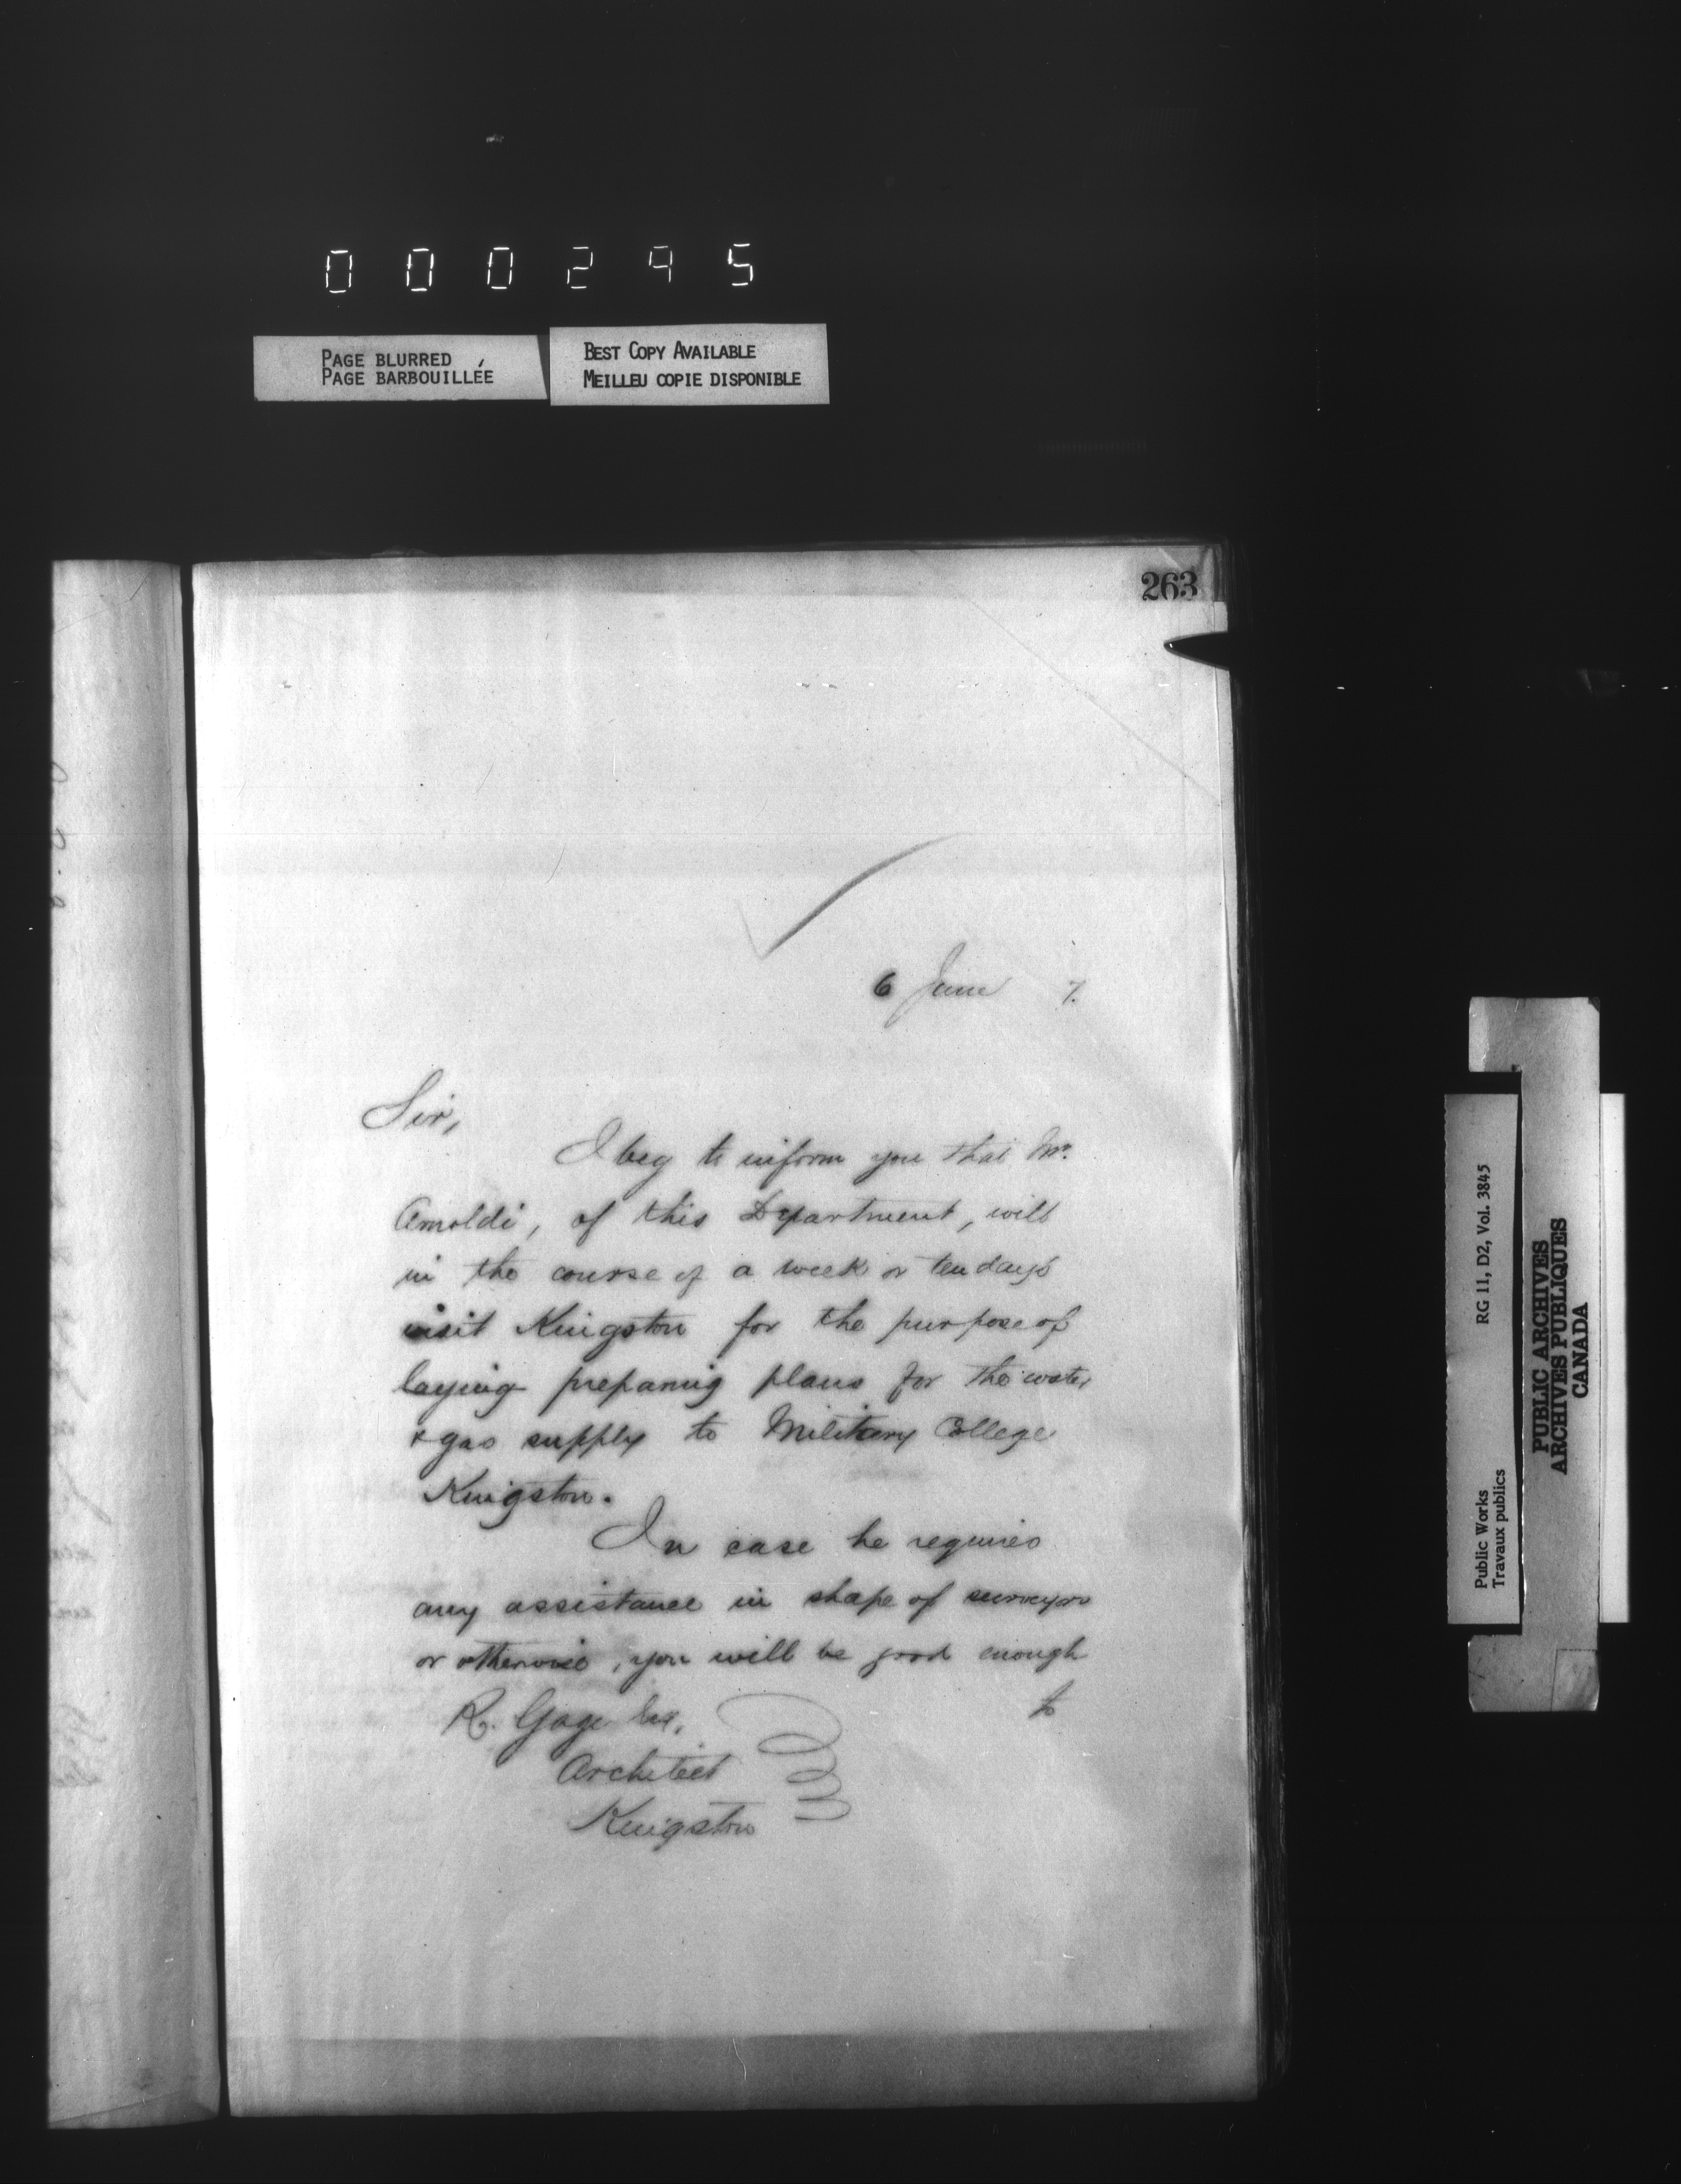 000295
PAGE BLURRED
PAGE BARBOUILLÉE
BEST COPY AVAILABLE
MEILLEU COPIE DISPONIBLE
263
6 June 7.
Sir,
I beg to inform you that Mr.
Arnoldi, of this Department, will
in the course of a week or ten days
visit Kingston for the purpose of
laying preparing plans for the water
& gas supply to Military College
Kingston.
In case he requires
any assistance in shape of surveyors
or otherwise, you will be good enough
to
R. Gage Esq,
Architect
Kingston
Public Works
Travaux publics
RG 11, D2, Vol. 3845
PUBLIC ARCHIVES
ARCHIVES PUBLIQUES
CANADA